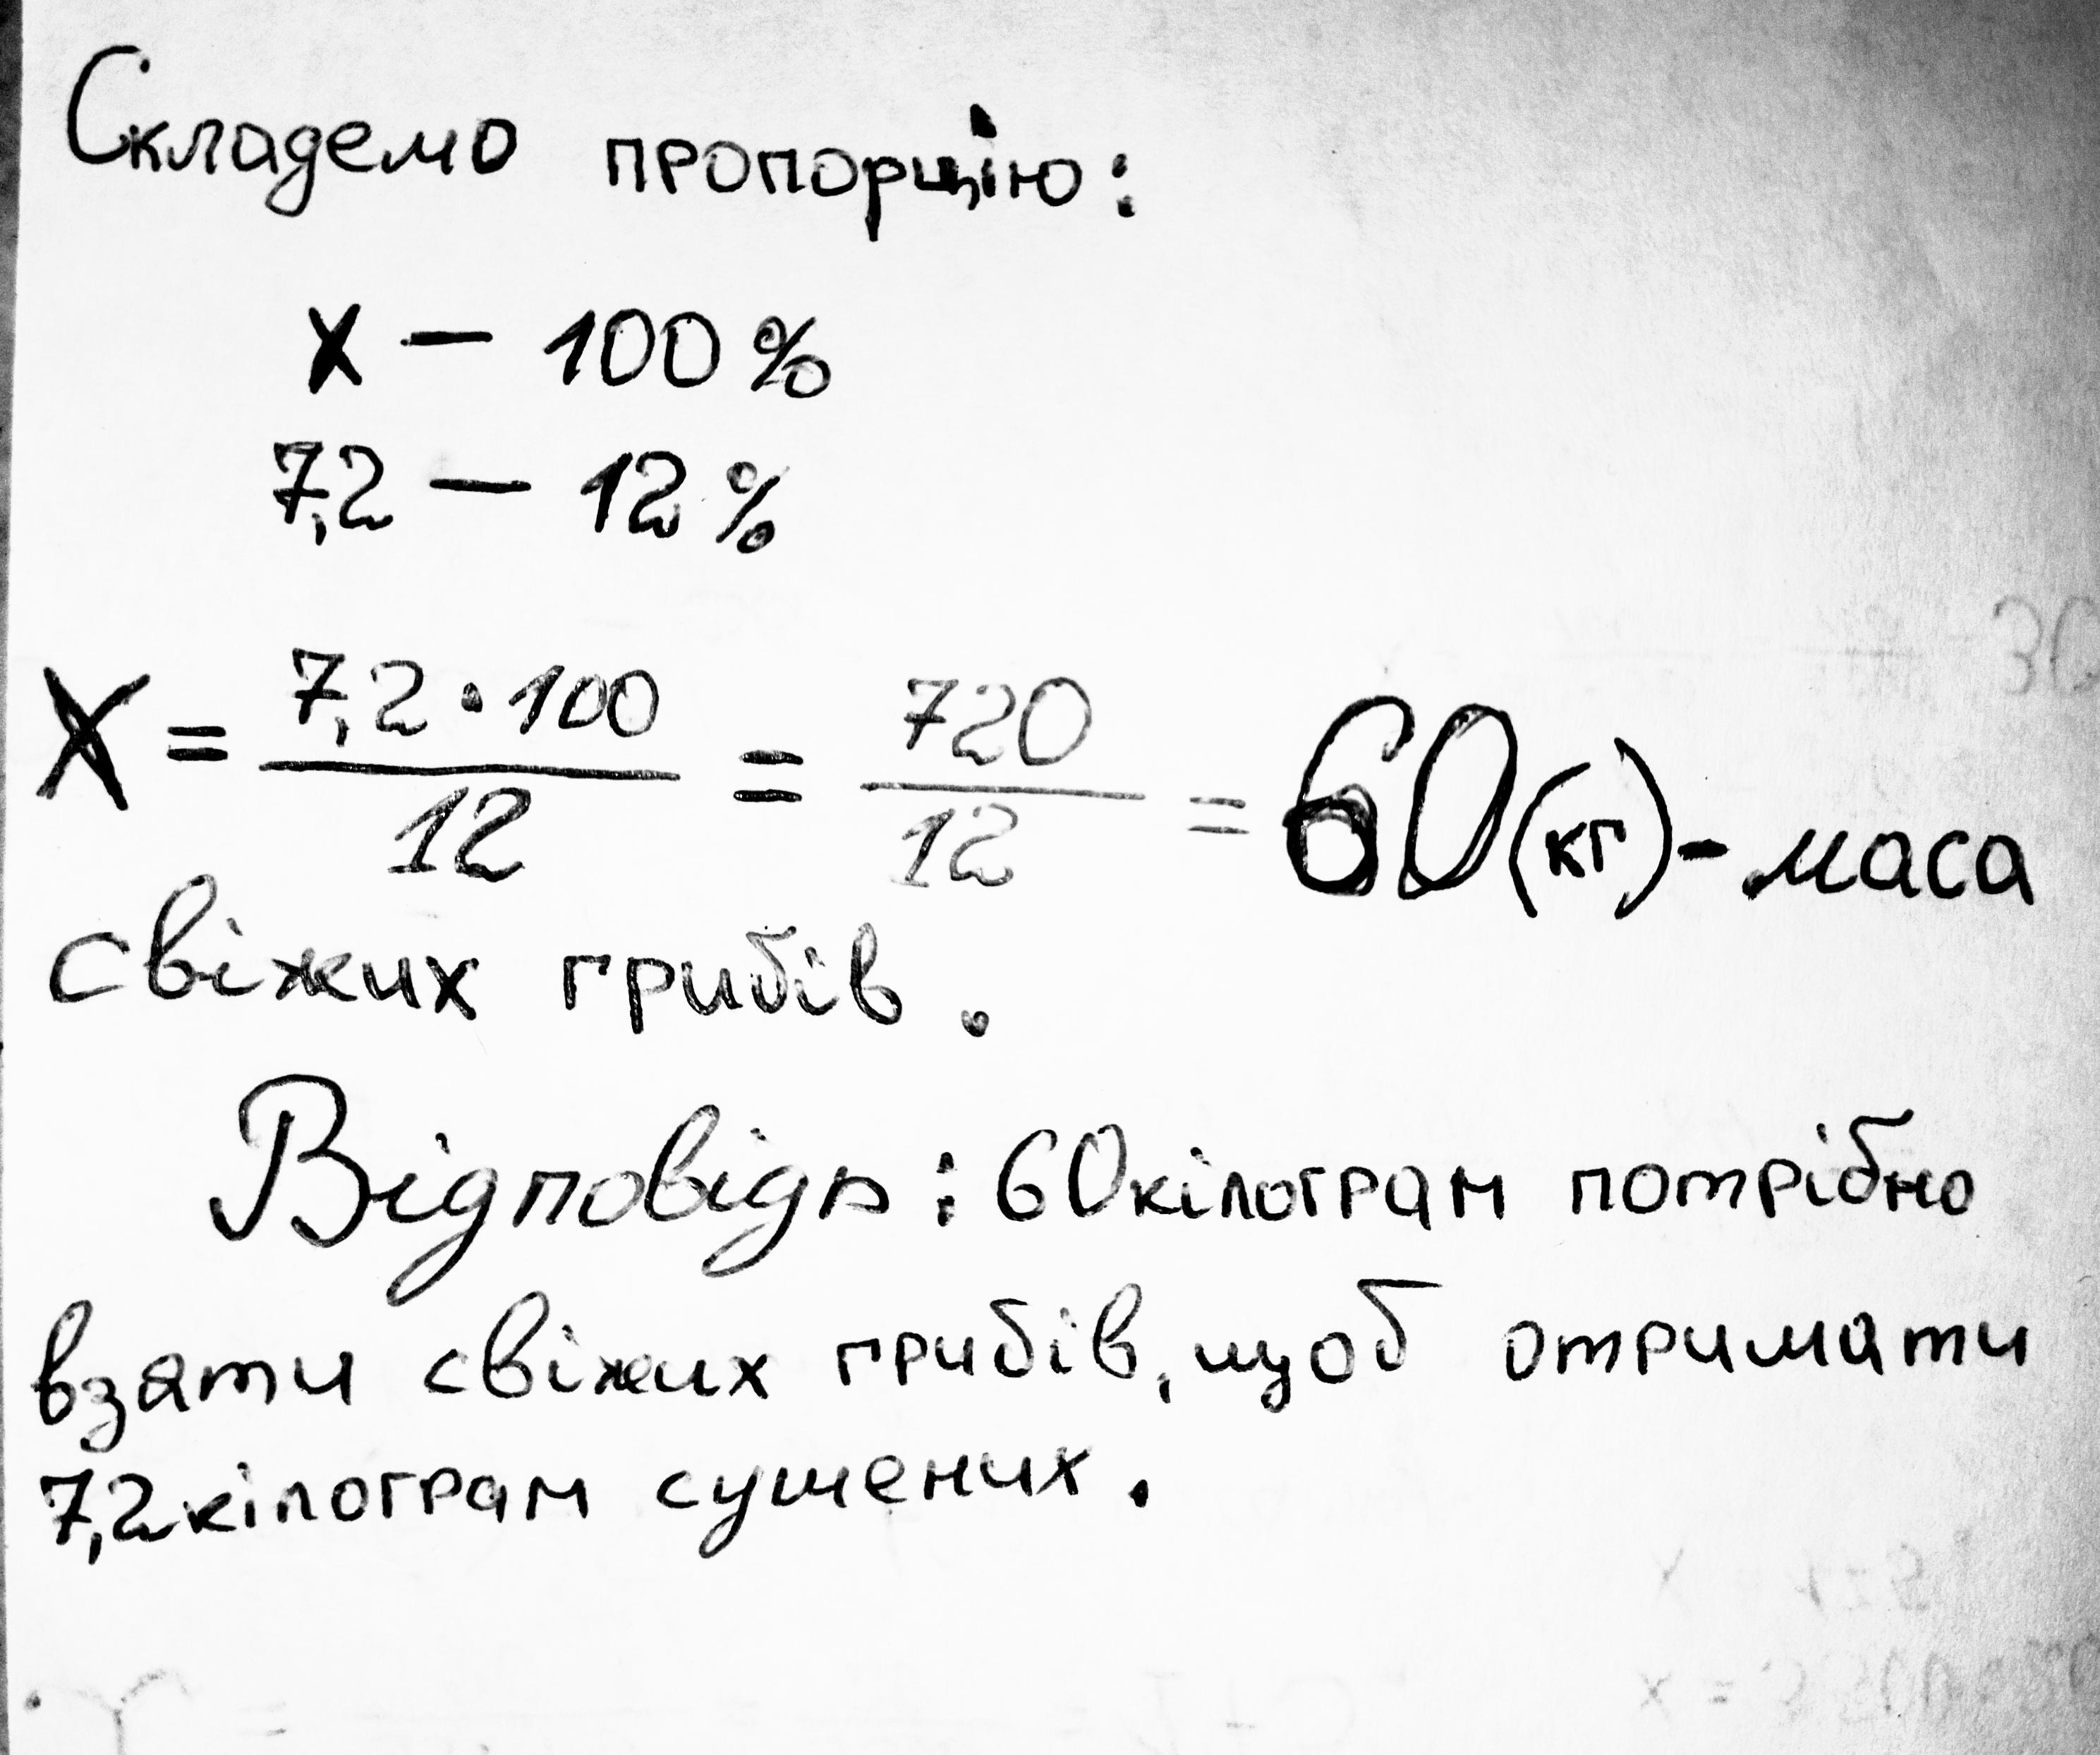 Складемо пропорцію:
x — 100%
7,2 — 12%
X = 7,2 · 100 / 12 = 720 / 12 = 60 (кг) - маса
свіжих грибів.
Відповідь: 60 кілограм потрібно
взяти свіжих грибів, щоб отримати
7,2 кілограм сушених.